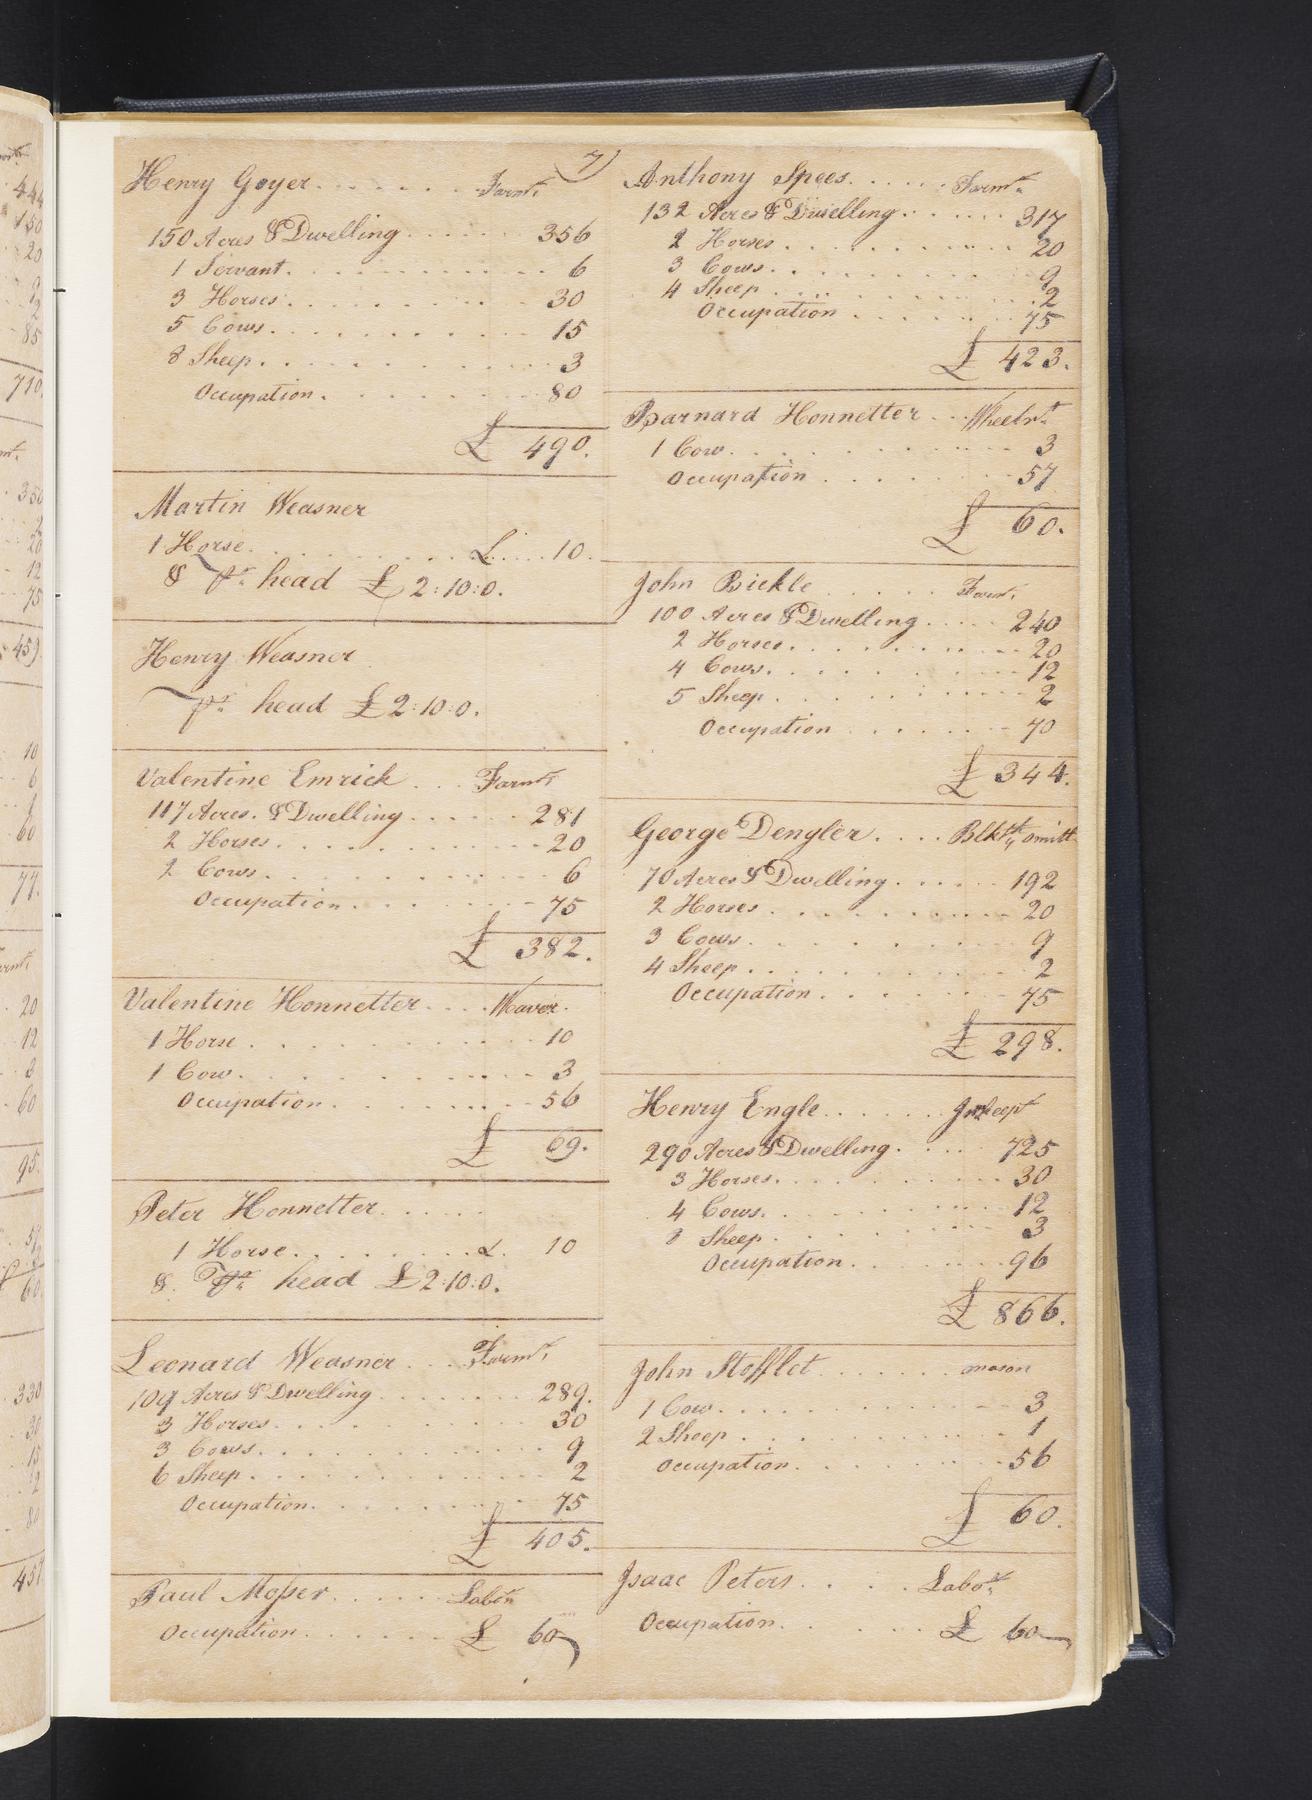 7)
Henry Goyer . . . . . . Farmr
150 Acres & Dwelling . . . . . 356
1 Servant . . . . . . 6
3 Horses . . . . . . 30
5 Cows . . . . . . 15
8 Sheep . . . . . . 3
Occupation . . . . . . 80
£ 490.
Martin Weasner
1 Horse . . . . . . £ . . . 10.
& pr head £ 2:10:0.
Henry Weasner
pr head £ 2:10:0.
Valentine Emrick . . . Farmr
117 Acres & Dwelling . . . . . 281
2 Horses . . . . . . 20
2 Cows . . . . . . 6
Occupation . . . . . . 75
£ 382.
Valentine Honnetter . . . Weaver.
1 Horse . . . . . . 10
1 Cow . . . . . . 3
Occupation . . . . . . 56
£ 69.
Peter Honnetter . . . . .
1 Horse . . . . . . £. 10
& pr head £ 2:10:0.
Leonard Weasner . . . Farmr
109 Acres & Dwelling . . . . . 289.
3 Horses . . . . . . 30
3 Cows . . . . . . 9
6 Sheep . . . . . . 2
Occupation . . . . . . 75
£ 405.
Paul Moſser . . . . . Labor
Occupation . . . . . . £ 60
Anthony Spees . . . . . Farmr
132 Acres & Dwelling . . . . . 317
2 Horses . . . . . . 20
3 Cows . . . . . . 9
4 Sheep . . . . . . 2
Occupation . . . . . . 75
£ 423.
Barnard Honnetter . . . Wheelrt
1 Cow . . . . . . 3
Occupation . . . . . . 57
£ 60.
John Bickle . . . . . Farmr
100 Acres & Dwelling . . . . . 240
2 Horses . . . . . . 20
4 Cows . . . . . . 12
5 Sheep . . . . . . 2
Occupation . . . . . . 70
£ 344.
George Dengler . . . . Blkstsmith
70 Acres & Dwelling . . . . . 192
2 Horses . . . . . . 20
3 Cows . . . . . . 9
4 Sheep . . . . . . 2
Occupation . . . . . . 75
£ 298.
Henry Engle . . . . . . Innkeepr
290 Acres & Dwelling . . . . 725
3 Horses . . . . . . 30
4 Cows . . . . . . 12
8 Sheep . . . . . . 3
Occupation . . . . . . 96
£ 866.
John Stofflet . . . . . . mason
1 Cow . . . . . . 3
2 Sheep . . . . . . 1
Occupation . . . . . . 56
£ 60.
Isaac Peters . . . . . Labor
Occupation . . . . . . £ 60